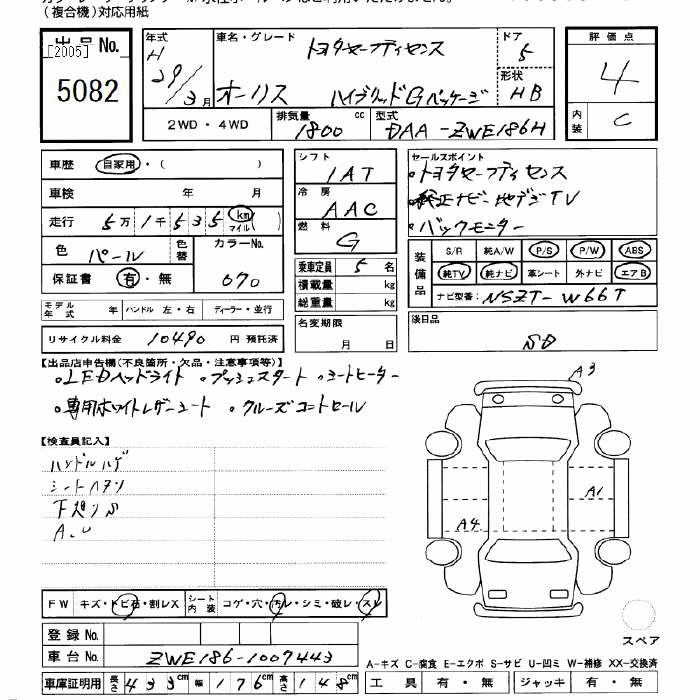 (複合機)対応用紙
出品No.
[2005]
5082
年式
H
29/3月
車名・グレード
トヨタセーフティセンス
オーリス ハイブリッドGパッケージ
ドア
5
形状
HB
評価点
4
内装
C
2WD・4WD
排気量
1800
cc
型式
DAA-ZWE186H
車歴
自家用・( )
車検 年 月
走行
5万1千535 km マイル ( )
色
パール
色替
カラーNo.
070
保証書 有・無
モデル年式 年 ハンドル 左・右 ディーラー・並行
リサイクル料金 10490 円 預託済
シフト
1AT
冷房
AAC
燃料
G
乗車定員 5 名
積載量 kg
総重量 kg
名変期限
月 日
セールスポイント
・トヨタセーフティセンス
・純正ナビ 地デジTV
・バックモニター
装備品
S/R 純A/W P/S P/W ABS
純TV 純ナビ 革シート 外ナビ エアB
ナビ型番: NSZT-W66T
後日品
SD
【出品店申告欄(不良箇所・欠品・注意事項等)】
・LEDヘッドライト ・プッシュスタート ・シートヒーター
・専用ホワイトレザーシート ・クルーズコントロール
【検査員記入】
ハンドルハゲ
シートヘタリ
下廻りS
A.U
A3
A1
A4
FW キズ・トビ石・割レX
シート内装 コゲ・穴・汚レ・シミ・破レ・スレ
登録No.
車台No. ZWE186-1007443
車庫証明用 長さ 433cm 幅 176cm 高さ 148cm
スペア
A-キズ C-腐食 E-エクボ S-サビ U-凹ミ W-補修 XX-交換済
工具 有・無 ジャッキ 有・無